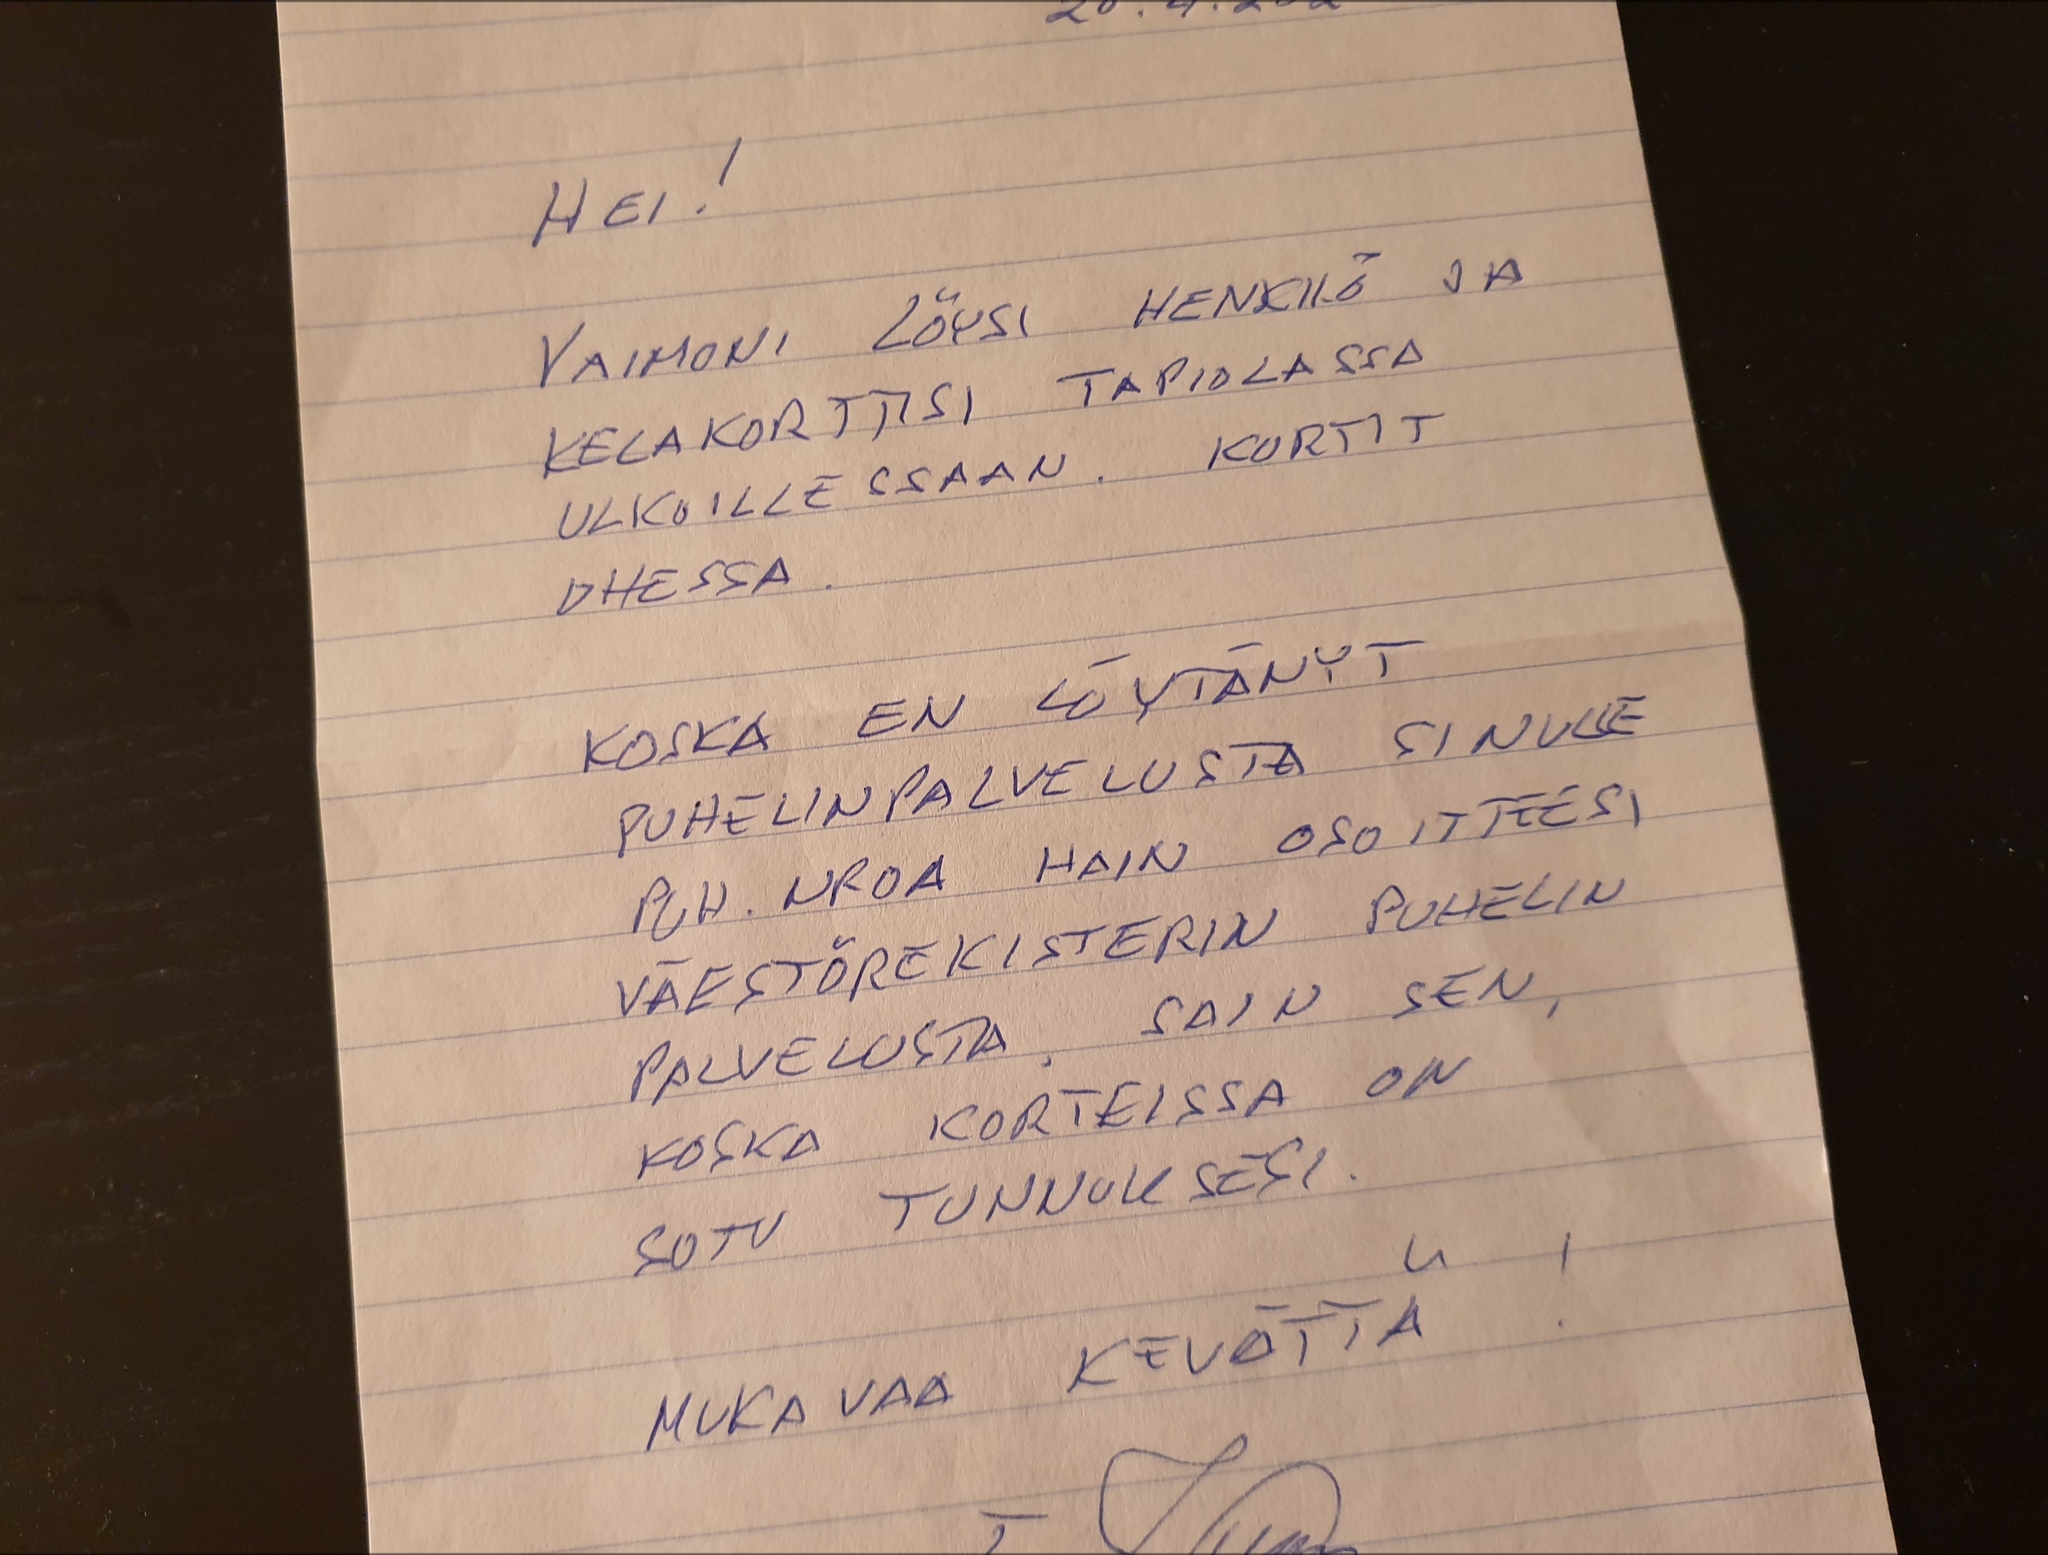 HEI!
VAIMONI LÖYSI HENKILÖ JA
KELAKORTTISI TAPIOLASSA
ULKOILLESSAAN. KORTIT
OHESSA.
KOSKA EN LÖYTÄNYT
PUHELINPALVELUSTA SINULLE
PUH. NROA HAIN OSOITTEESI
VÄESTÖREKISTERIN PUHELIN
PALVELUSTA. SAIN SEN,
KOSKA KORTEISSA ON
SOTU TUNNUKSESI.
MUKAVAA KEVÄTTÄ !